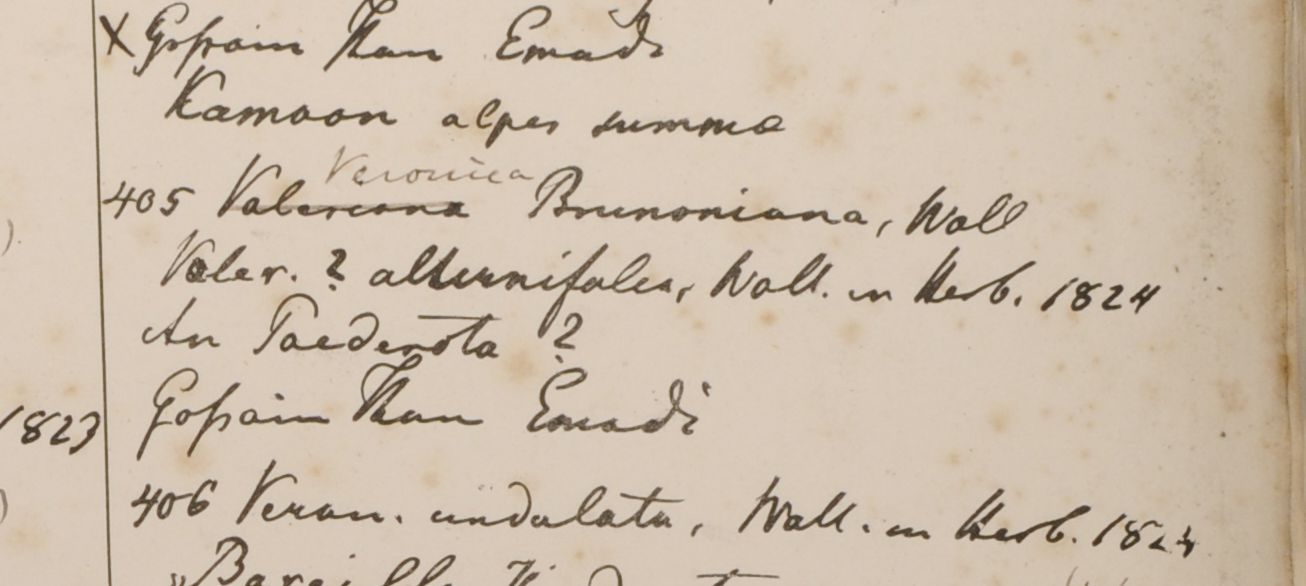 X Gossain Than Emodi
Kamaon alpes summa
Veronica
405 Valeriana Brunoniana, Wall
Valer. ? alternifolia, Wall. in Herb. 1824
An Paederota ?
1823 Gossain Than Emodi
406 Veron. undulata, Wall. in Herb. 1824
Bareilly